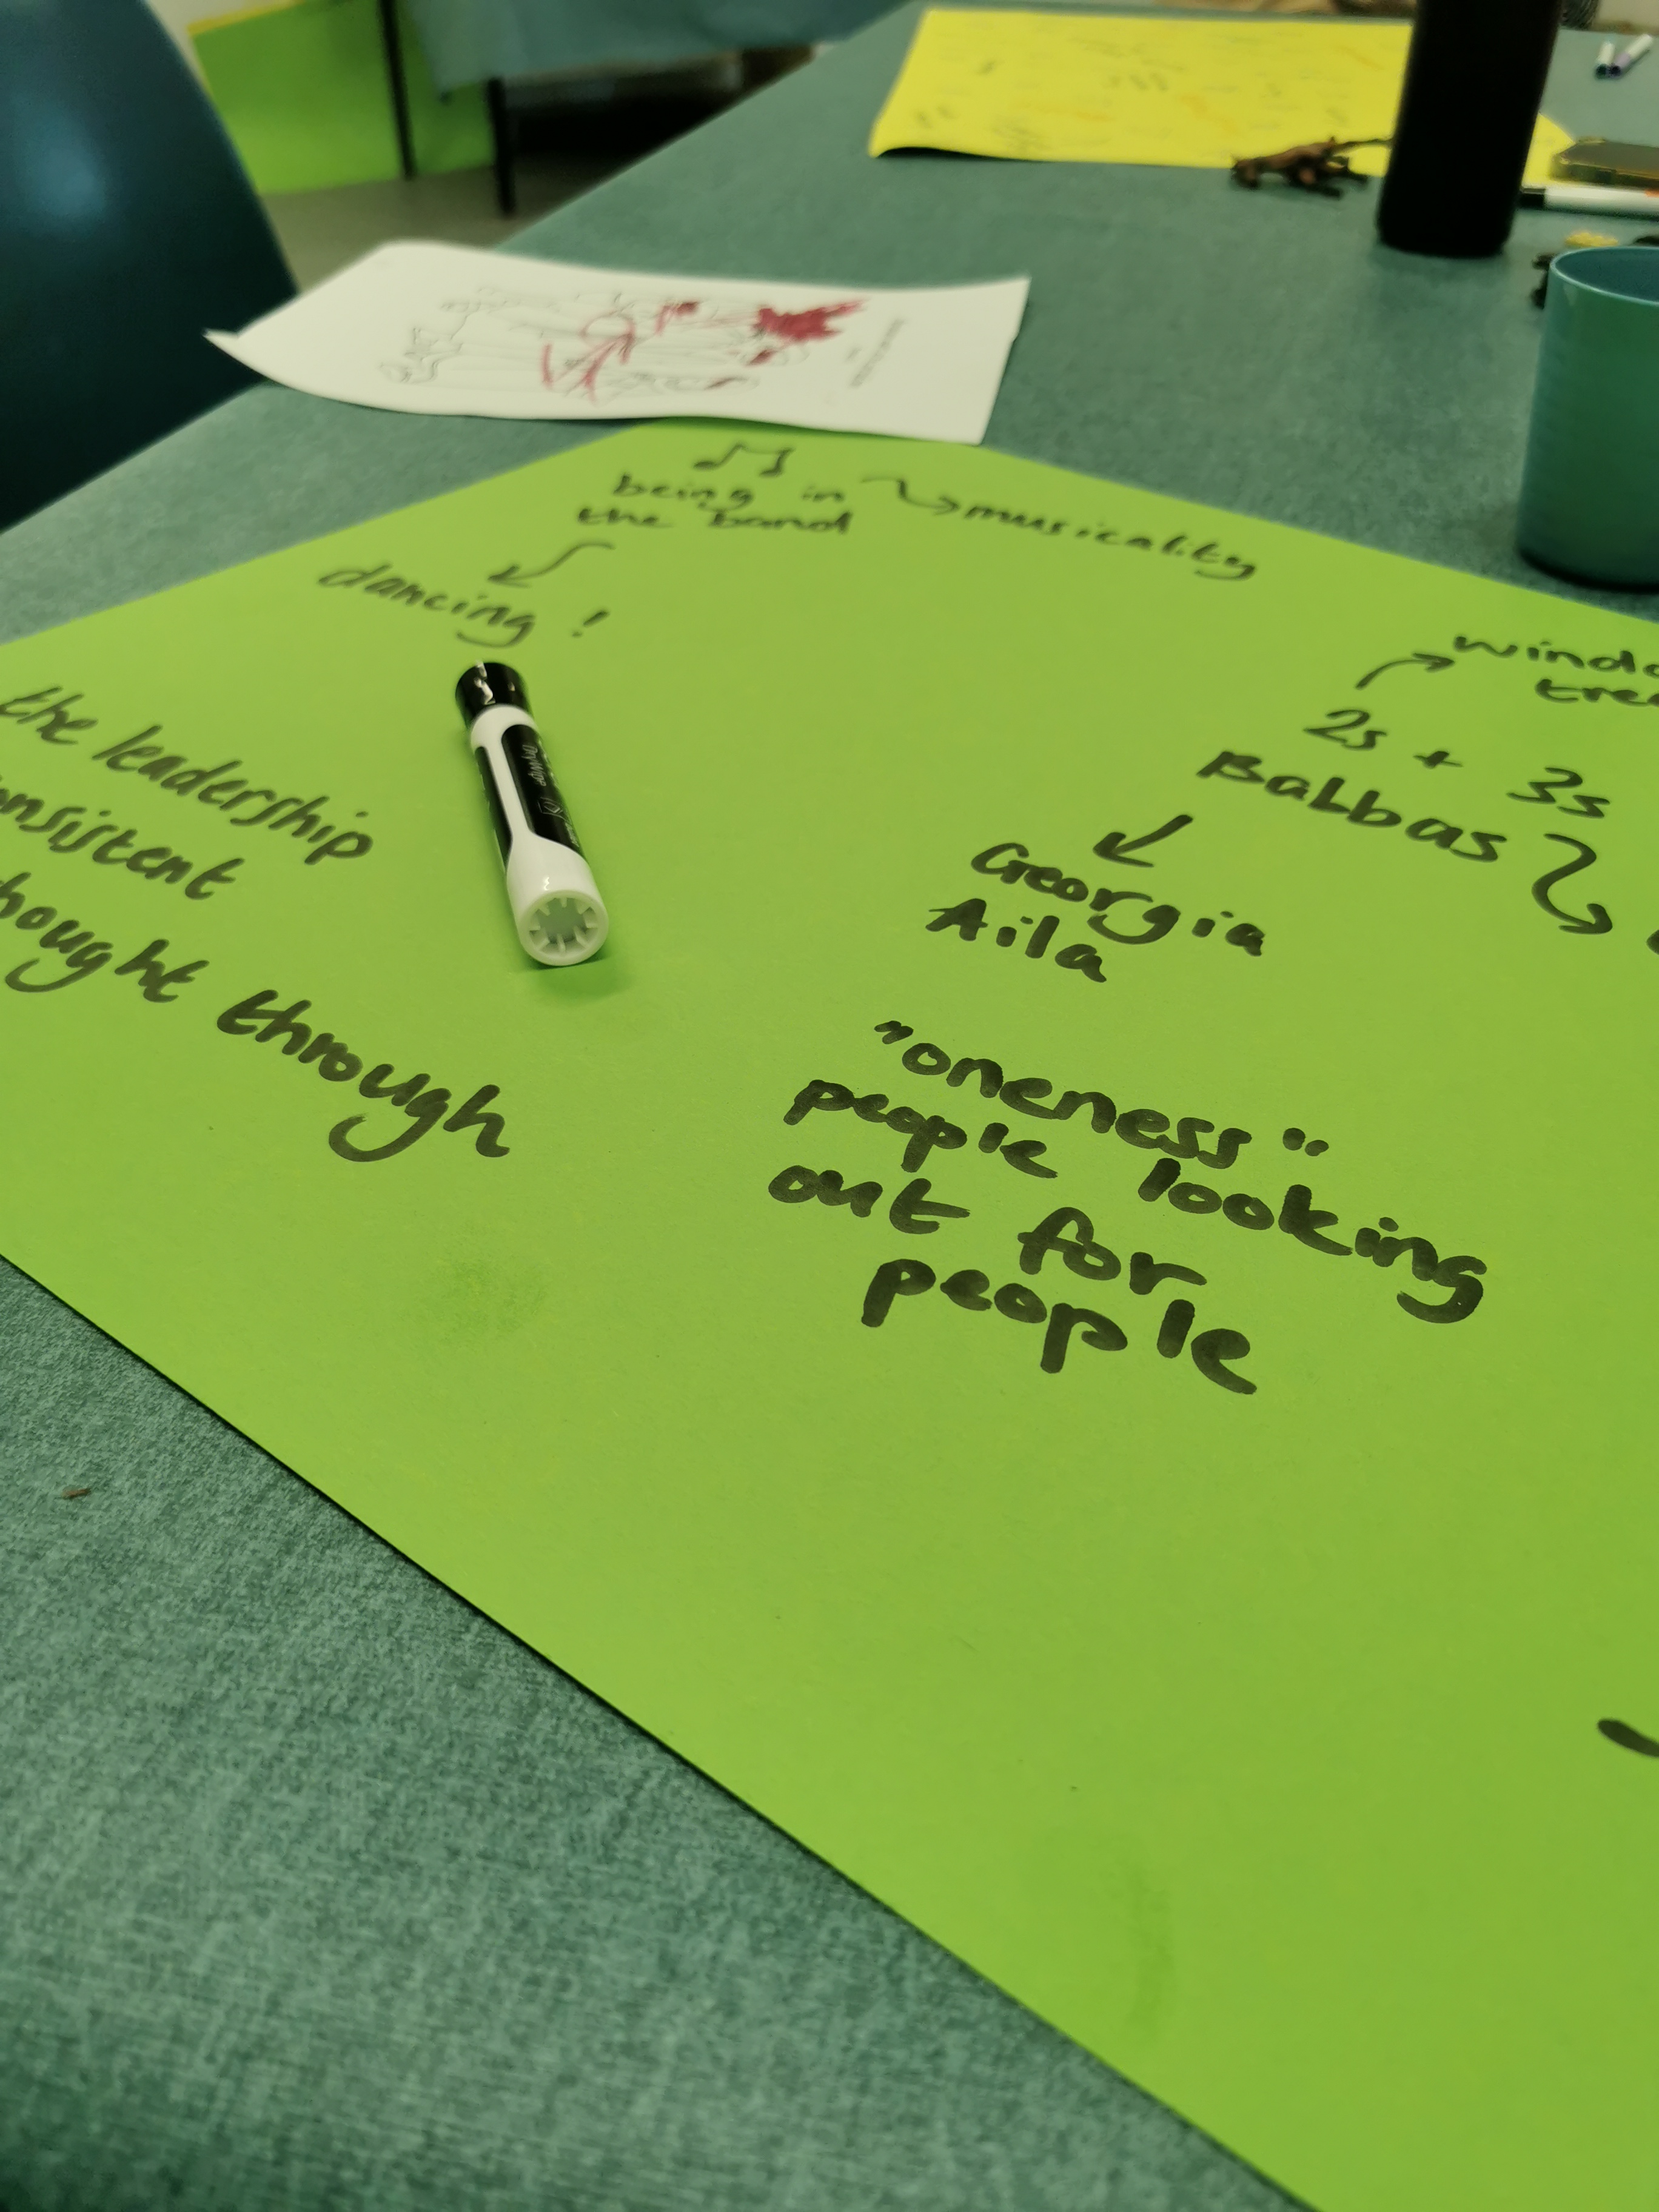 being in
the band
musicality
dancing !
the leadership
thought through
2s + 3s
Balbas
Georgia
Aila
"oneness"
people looking
out for
people